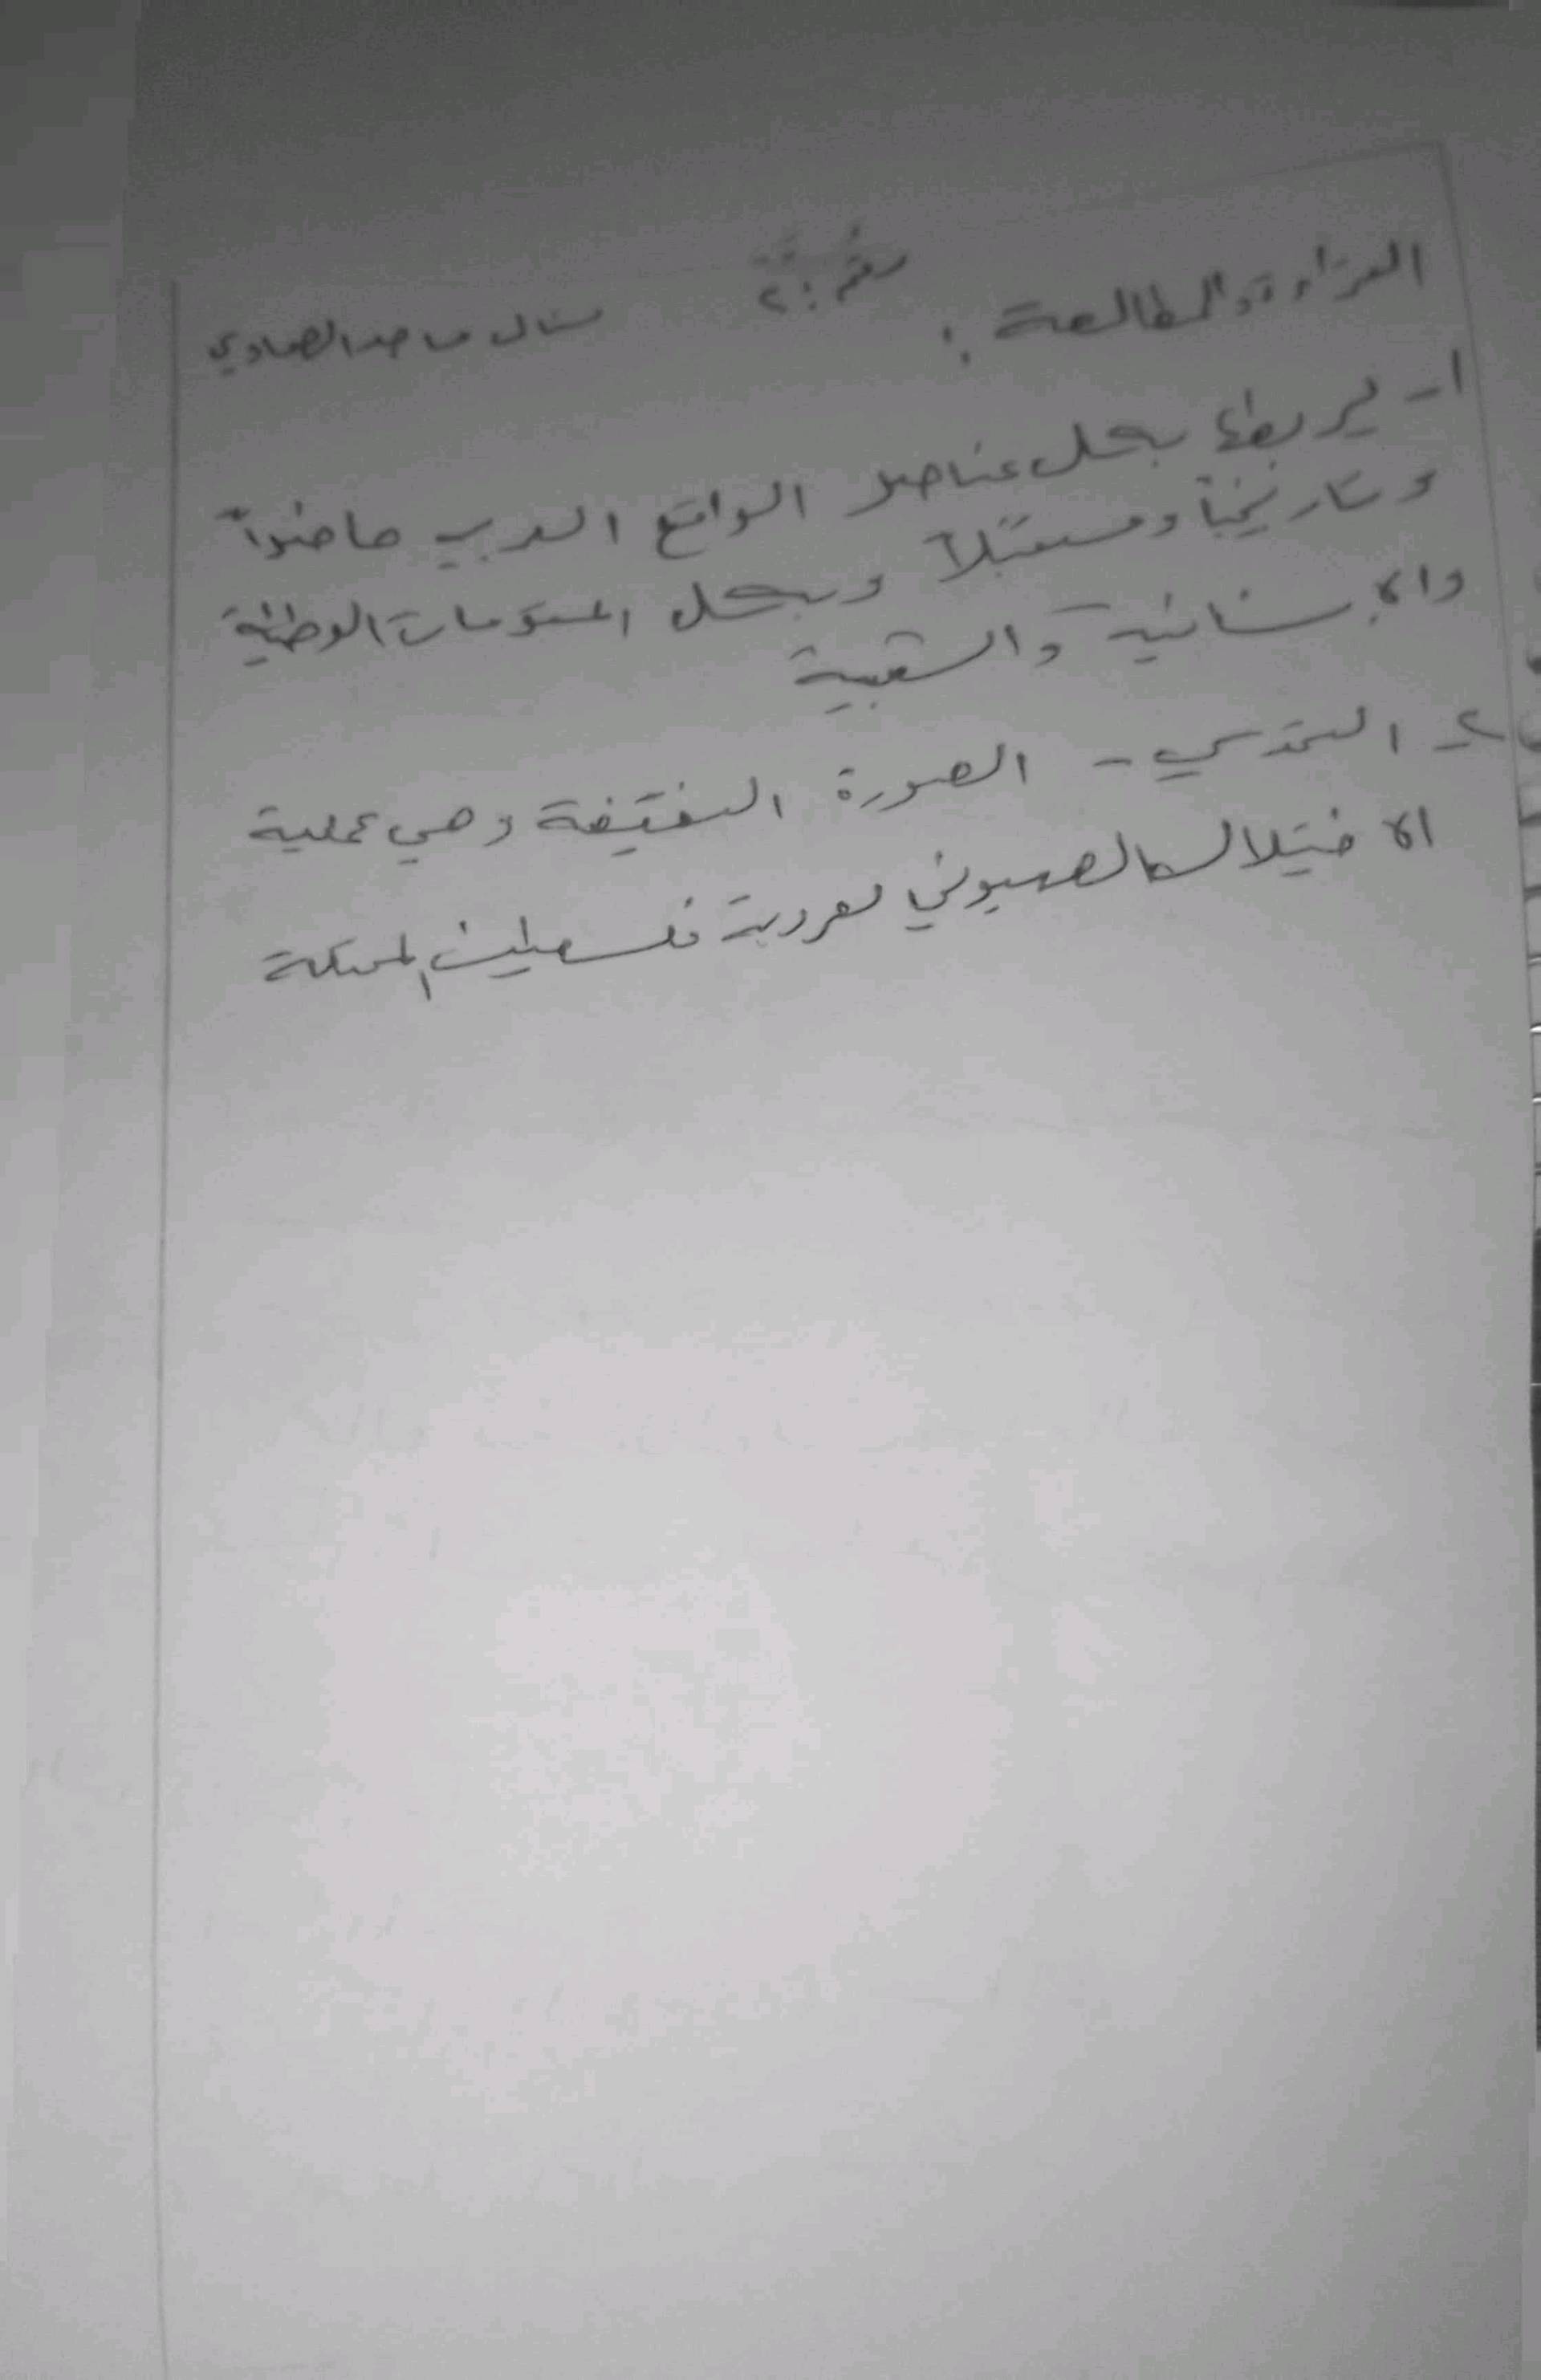 القراءة والمطالعة :
رقم : ٢
منال ماجد الصمادي
١- لير بطها بكل عناصر الواقع العربي حاضراً
وتاريخياً ومستقبلاً وبكل المستويات الوطنية
والإنسانية والشعبية
٢- التحدي - الصورة النقيضة وهي عملية
الاختلال الصهيوني لعروبة فلسطين